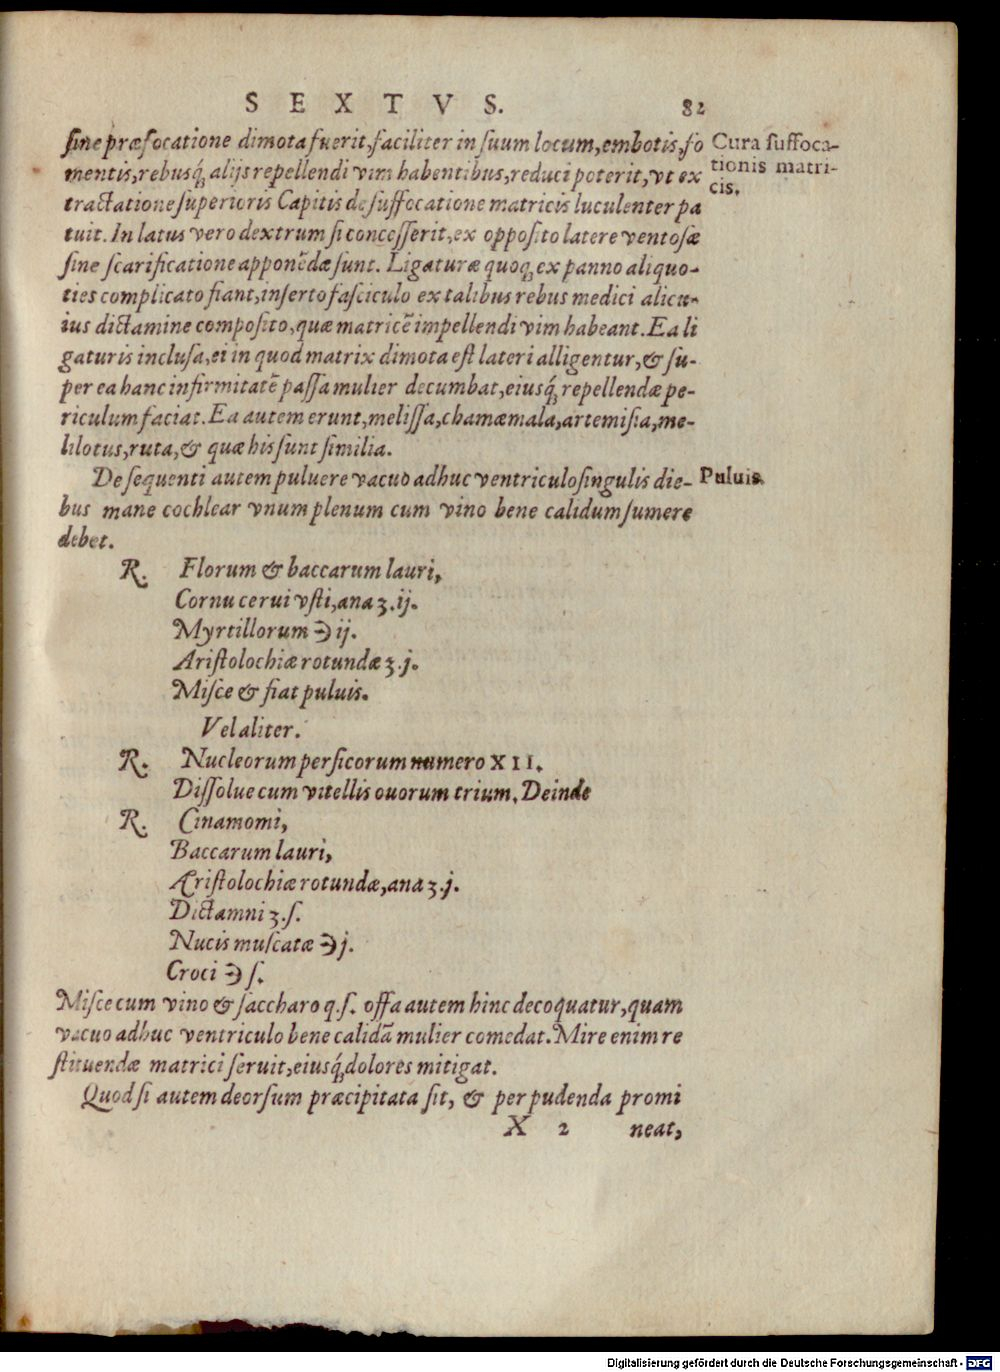 SEXTVS. 82
sine præfocatione dimota fuerit, faciliter in suum locum, embotis, fo
mentis, rebusq́; alijs repellendi vim habentibus, reduci poterit, vt ex
tractatione superioris Capitis de suffocatione matricis luculenter pa
tuit. In latus vero dextrum si concesserit, ex opposito latere ventosæ
sine scarificatione apponẽdæ sunt. Ligaturæ quoq; ex panno aliquo-
ties complicato fiant, inserto fasciculo ex talibus rebus medici alicu-
ius dictamine composito, quæ matricẽ impellendi vim habeant. Ea li
gaturis inclusa, ei in quod matrix dimota est lateri alligentur, & su-
per ea hanc infirmitatẽ passa mulier decumbat, eiusq́; repellendæ pe-
riculum faciat. Ea autem erunt, melissa, chamæmala, artemisia, me-
lilotus, ruta, & quæ his sunt similia.
Cura suffoca-
tionis matri-
cis.
De sequenti autem puluere vacuo adhuc ventriculo singulis die-
bus mane cochlear vnum plenum cum vino bene calidum sumere
debet.
Puluis.
R. Florum & baccarum lauri,
Cornu cerui vsti, ana ʒ. ij.
Myrtillorum ℈ ij.
Aristolochiæ rotundæ ʒ. j.
Misce & fiat puluis.
Vel aliter.
R. Nucleorum persicorum numero XII.
Dissolue cum vitellis ouorum trium. Deinde
R. Cinamomi,
Baccarum lauri,
Æristolochiæ rotundæ, ana ʒ. j.
Dictamni ʒ. s.
Nucis muscatæ ℈ j.
Croci ℈ s.
Misce cum vino & saccharo q. s. offa autem hinc decoquatur, quam
vacuo adhuc ventriculo bene calidã mulier comedat. Mire enim re
stituendæ matrici seruit, eiusq́; dolores mitigat.
Quod si autem deorsum præcipitata sit, & per pudenda promi
X 2 neat,
Digitalisierung gefördert durch die Deutsche Forschungsgemeinschaft - DFG